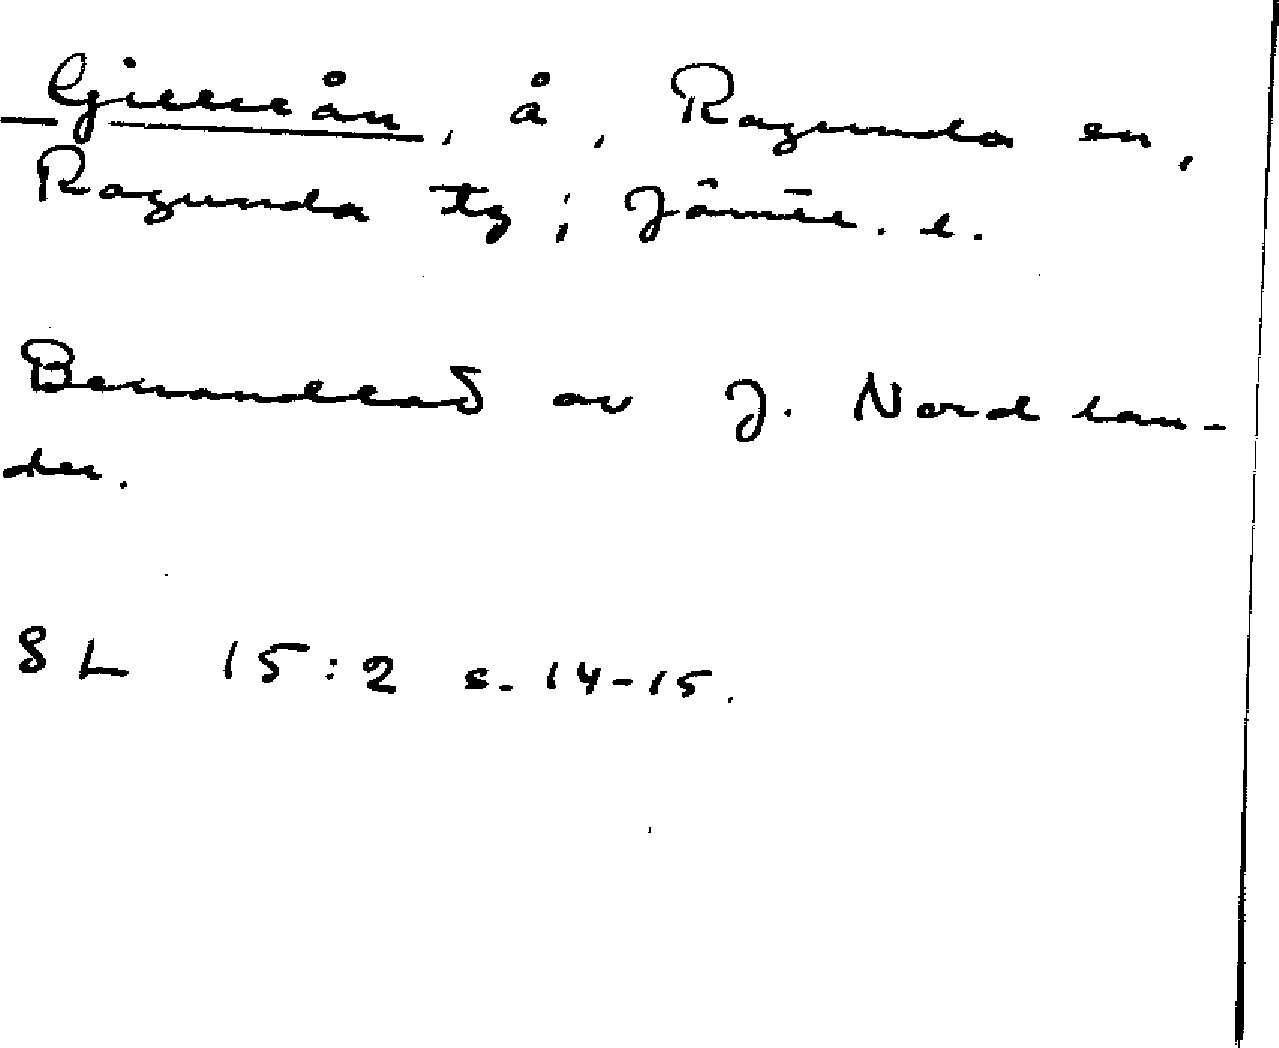 Gillerån, å, Ragunda sn,
Ragunda tg; Jämtl. l.
Behandlad av J. Nordlan-
der.
SL 15:2 s. 14-15.